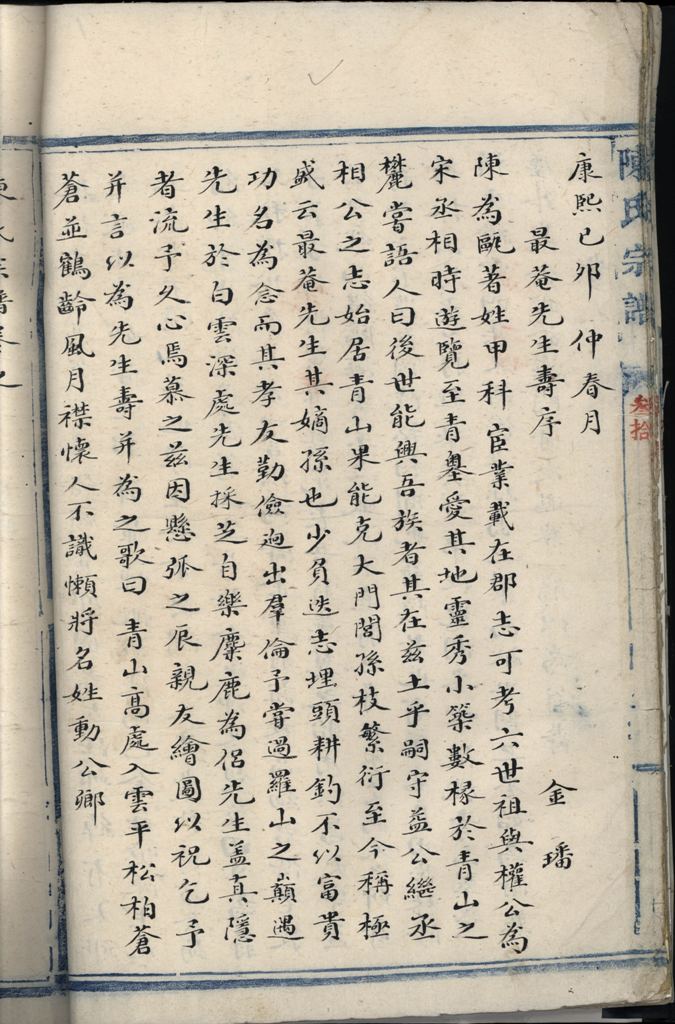 陳氏宗譜
叁拾
康熙己卯 仲春月
最菴先生壽序
金璠
陳為甌著姓甲科宦業載在郡志可考六世祖與權公為
宋丞相時遊覽至青嶴愛其地靈秀小築數椽於青山之
麓嘗語人曰後世能興吾族者其在兹土乎嗣守益公繼丞
相公之志始居青山果能克大門閭孫枝繁衍至今稱極
盛云最菴先生其嫡孫也少負迭志埋頭耕釣不以富貴
功名為念而其孝友勤儉逈出羣倫予嘗過羅山之巔遇
先生於白雲深處先生採芝自樂麋鹿為侶先生盖真隱
者流予久心焉慕之兹因懸弧之辰親友繪圖以祝乞予
并言以為先生壽并為之歌曰 青山高處入雲平松柏蒼
蒼並鶴齡風月襟懷人不識懶將名姓動公卿